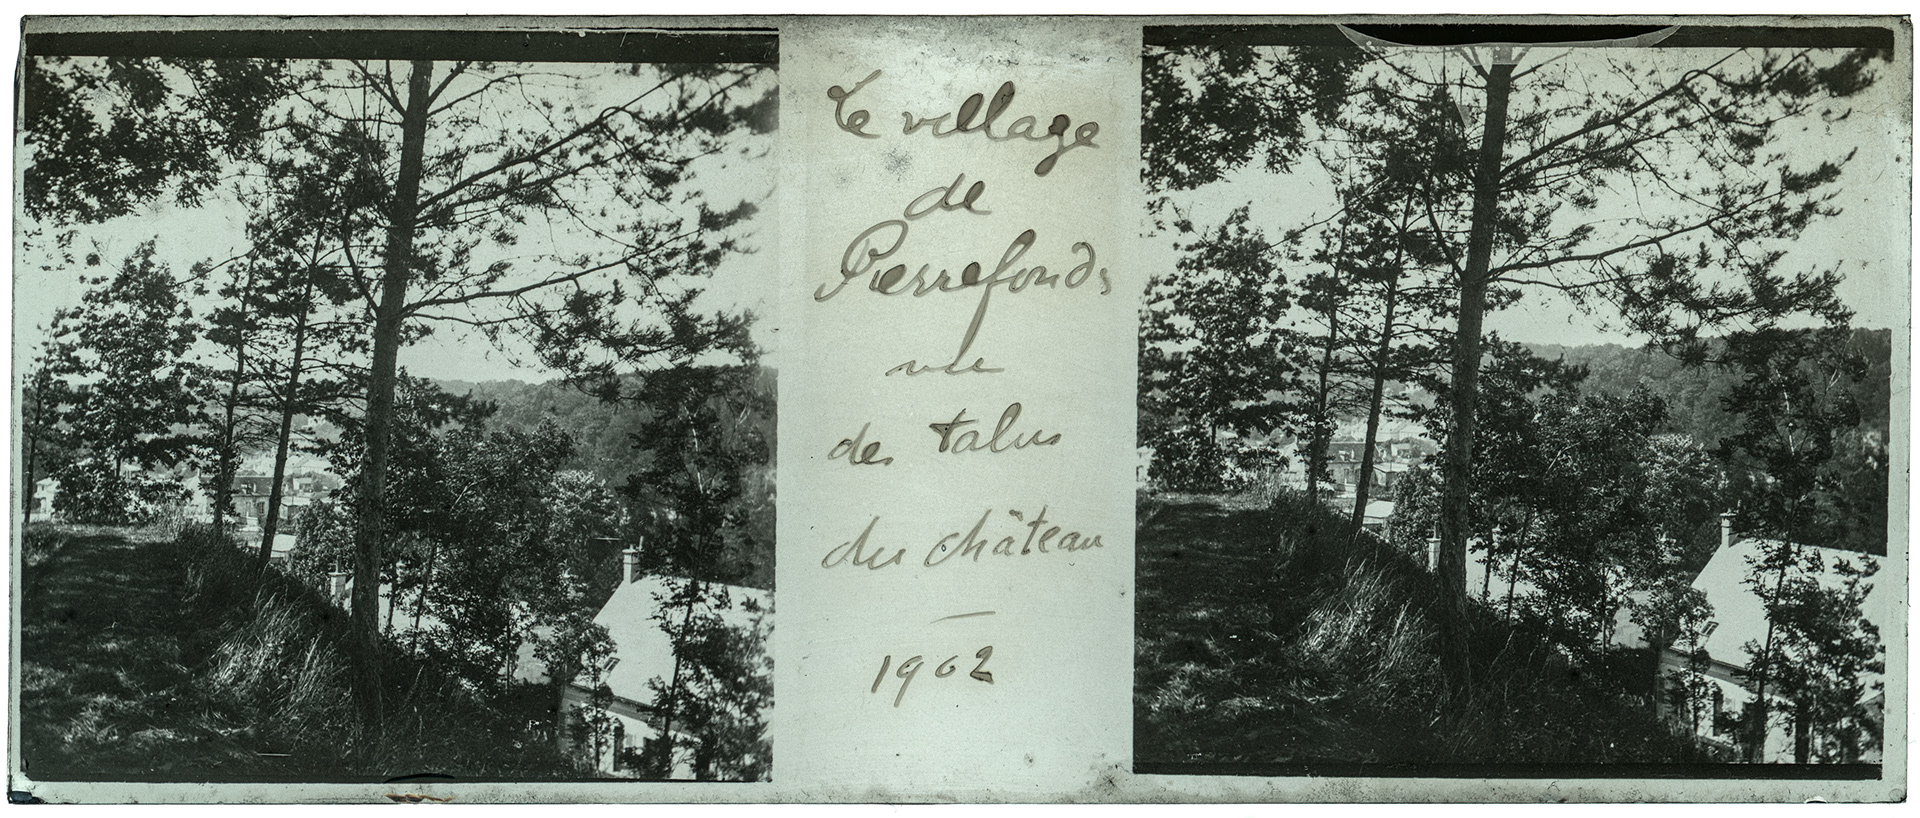 Le village
de
Pierrefonds
vue
des talus
du château
1902